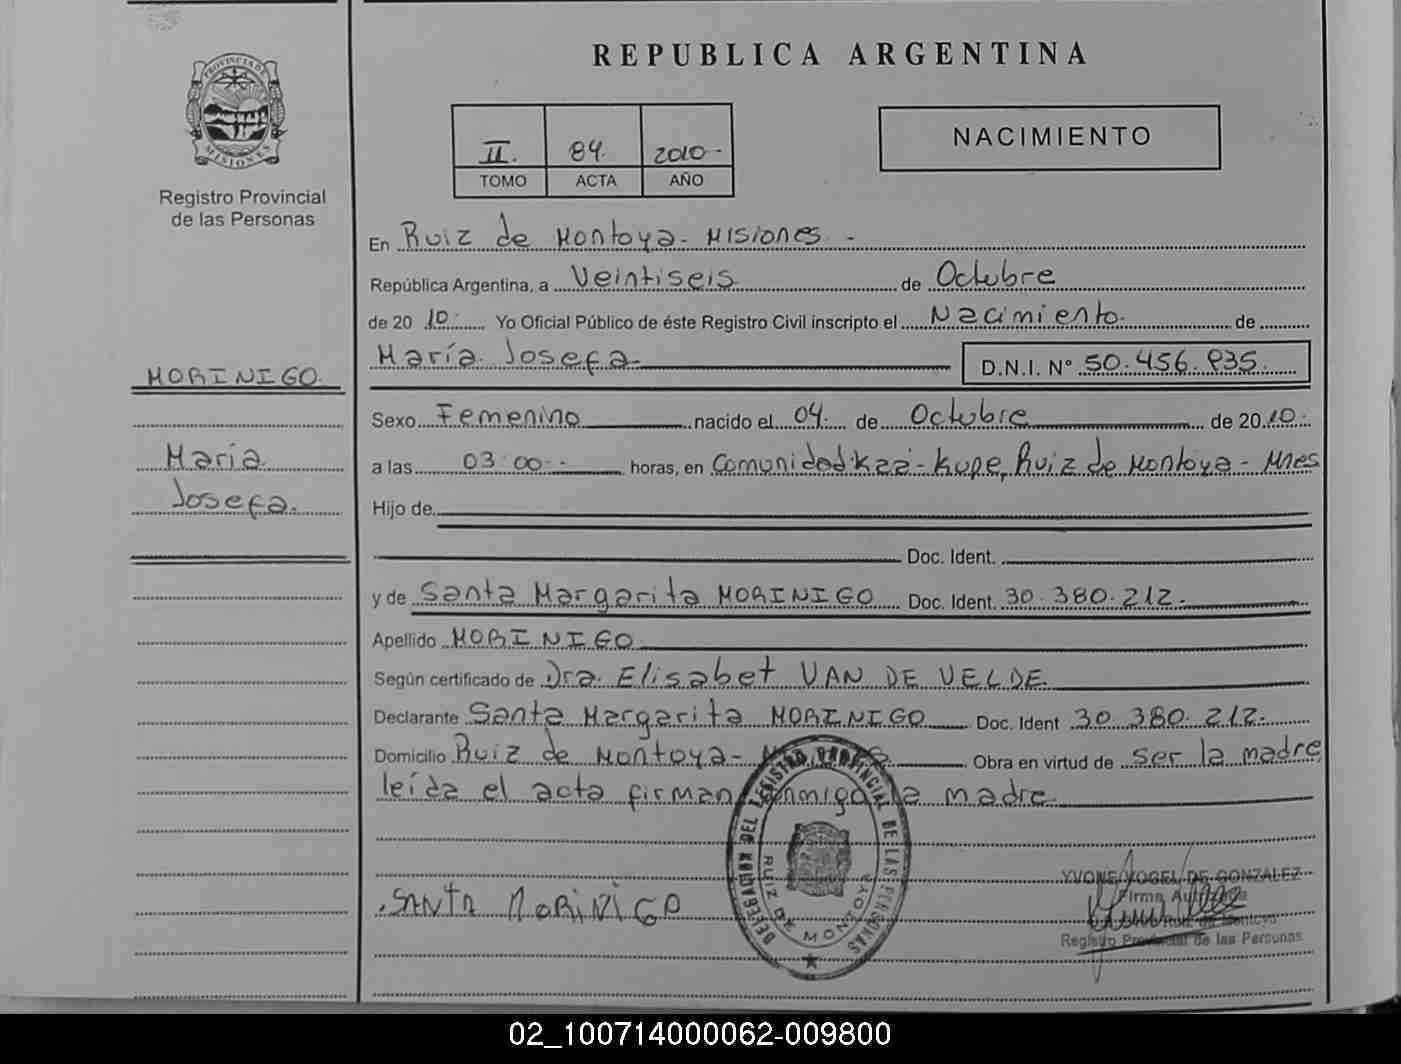 REPUBLICA ARGENTINA
PROVINCIA DE MISIONES
Registro Provincial
de las Personas
II. 84. 2010-
TOMO ACTA AÑO
NACIMIENTO
En Ruiz de Montoya- Misiones -
República Argentina, a Veintiseis de Octubre
de 20 10. Yo Oficial Público de éste Registro Civil inscripto el Nacimiento. de
María Josefa D.N.I. N° 50.456.835.
MORINIGO
María
Josefa.
Sexo Femenino nacido el 04. de Octubre de 20 10.
a las 03:00 - horas, en Comunidad Kaa-Kupe, Ruiz de Montoya- Mnes
Hijo de
Doc. Ident.
y de Santa Margarita MORINIGO Doc. Ident. 30.380.212.
Apellido MORINIGO
Según certificado de Dra. Elisabet VAN DE VELDE
Declarante Santa Margarita MORINIGO Doc. Ident 30.380.212.
Domicilio Ruiz de Montoya- Obra en virtud de ser la madre,
leída el acta firman conmigo la madre
DELEGACION DEL REGISTRO PROVINCIAL DE LAS PERSONAS
RUIZ DE MONTOYA
SANTA MORINIGO
YVONE VOGEL DE GONZALEZ
Firma Autorizada
Ruiz de Montoya
Registro Provincial de las Personas
02_100714000062-009800